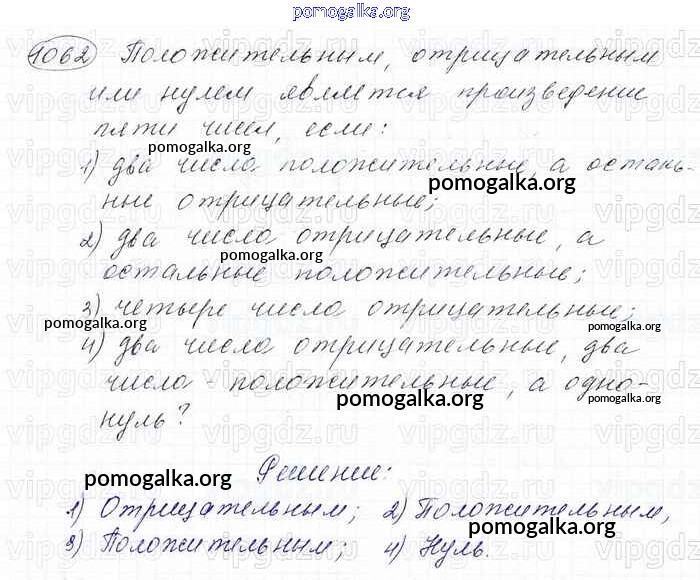 pomogalka.org
1062 Положительным, отрицательным
или нулем является произведение
пяти чисел, если:
1) два числа положительные, а осталь-
pomogalka.org
ные отрицательные;
2) два числа отрицательные, а
pomogalka.org
остальные положительные;
3) четыре числа отрицательные;
pomogalka.org pomogalka.org
4) два числа отрицательные, два
числа - положительные, а одно-
pomogalka.org pomogalka.org
нуль?
Решение:
pomogalka.org
1) Отрицательным; 2) Положительным,
pomogalka.org
3) Положительным; 4) Нуль.